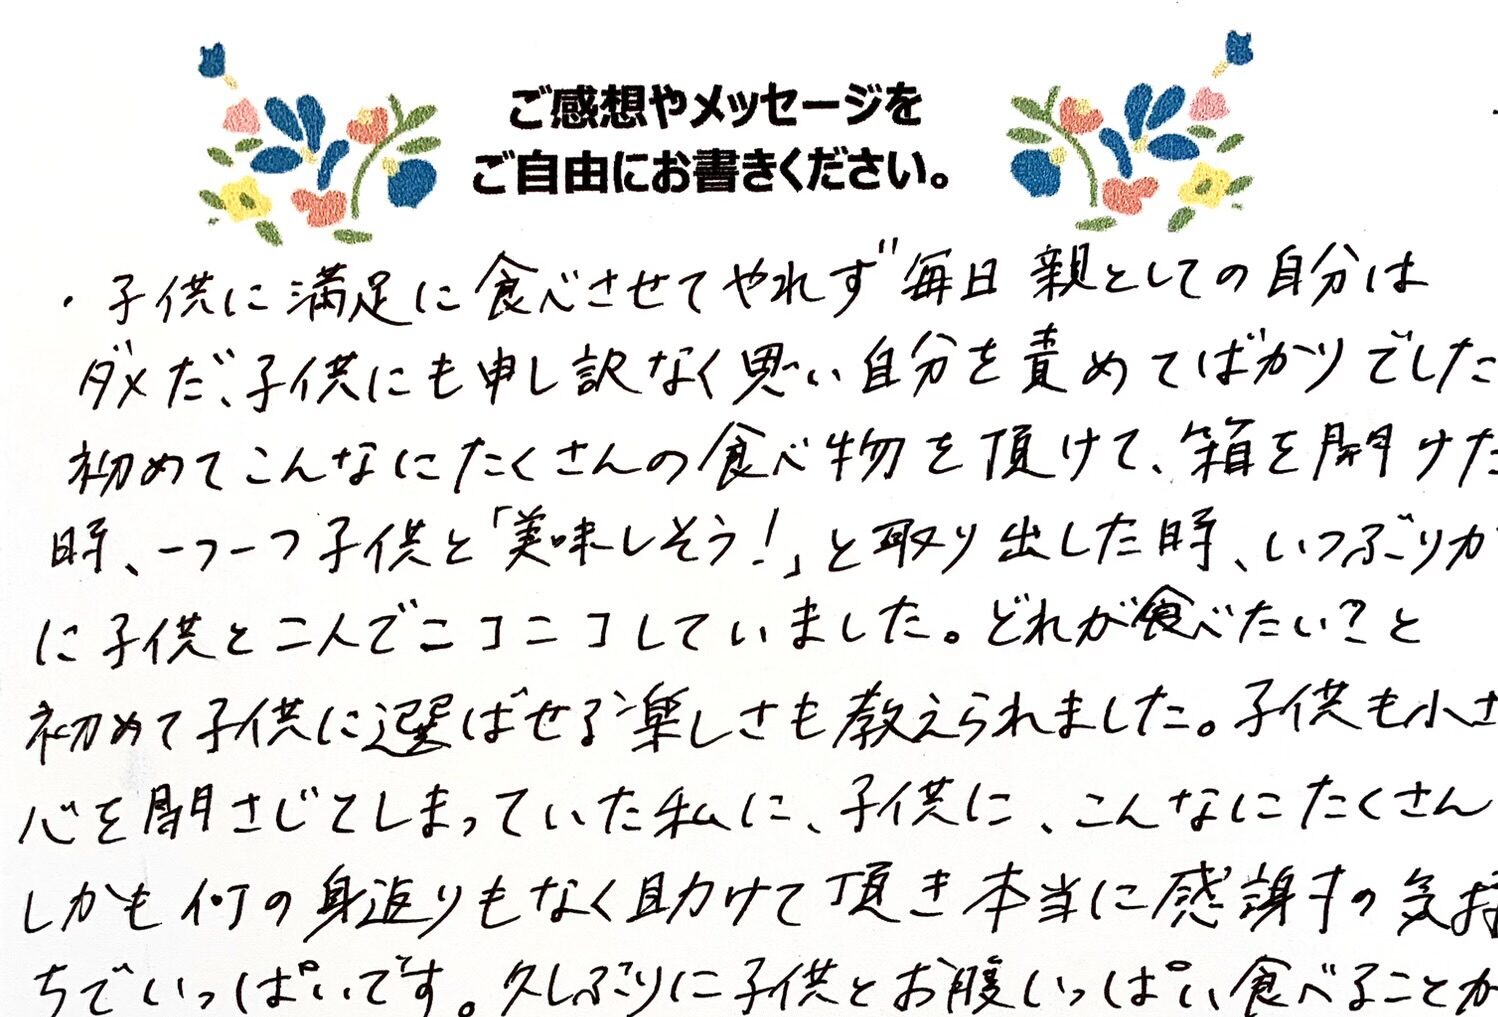 ご感想やメッセージを
ご自由にお書きください。
・子供に満足に食べさせてやれず毎日親としての自分は
ダメだ、子供にも申し訳なく思い自分を責めてばかりでした
初めてこんなにたくさんの食べ物を頂けて、箱を開けた
時、一つ一つ子供と「美味しそう!」と取り出した時、いつぶりか
に子供と二人でニコニコしていました。どれが食べたい?と
初めて子供に選ばせる楽しさも教えられました。子供も小さ
心を閉さじてしまっていた私に、子供に、こんなにたくさん
しかも何の身返りもなく助けて頂き本当に感謝の気持
ちでいっぱいです。久しぶりに子供とお腹いっぱい食べることが